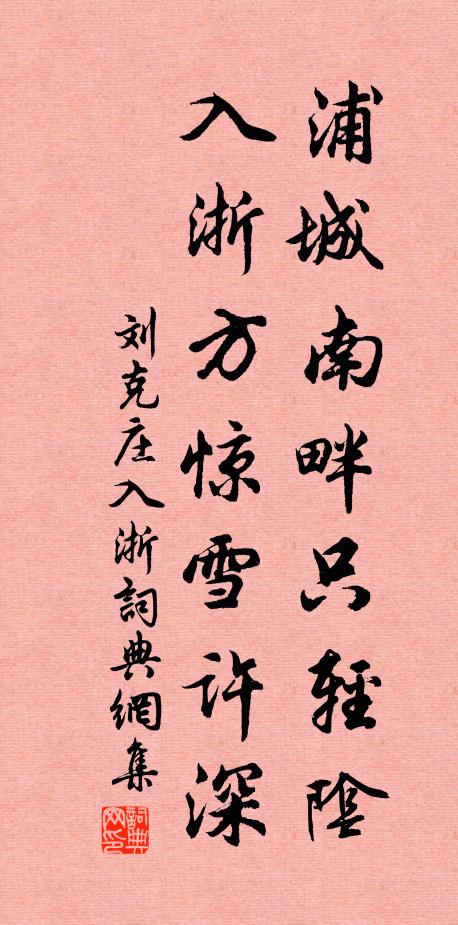 浦城南畔只輕陰
入浙方惊雪许深
刘克庄入浙詞典網集
詞典网印